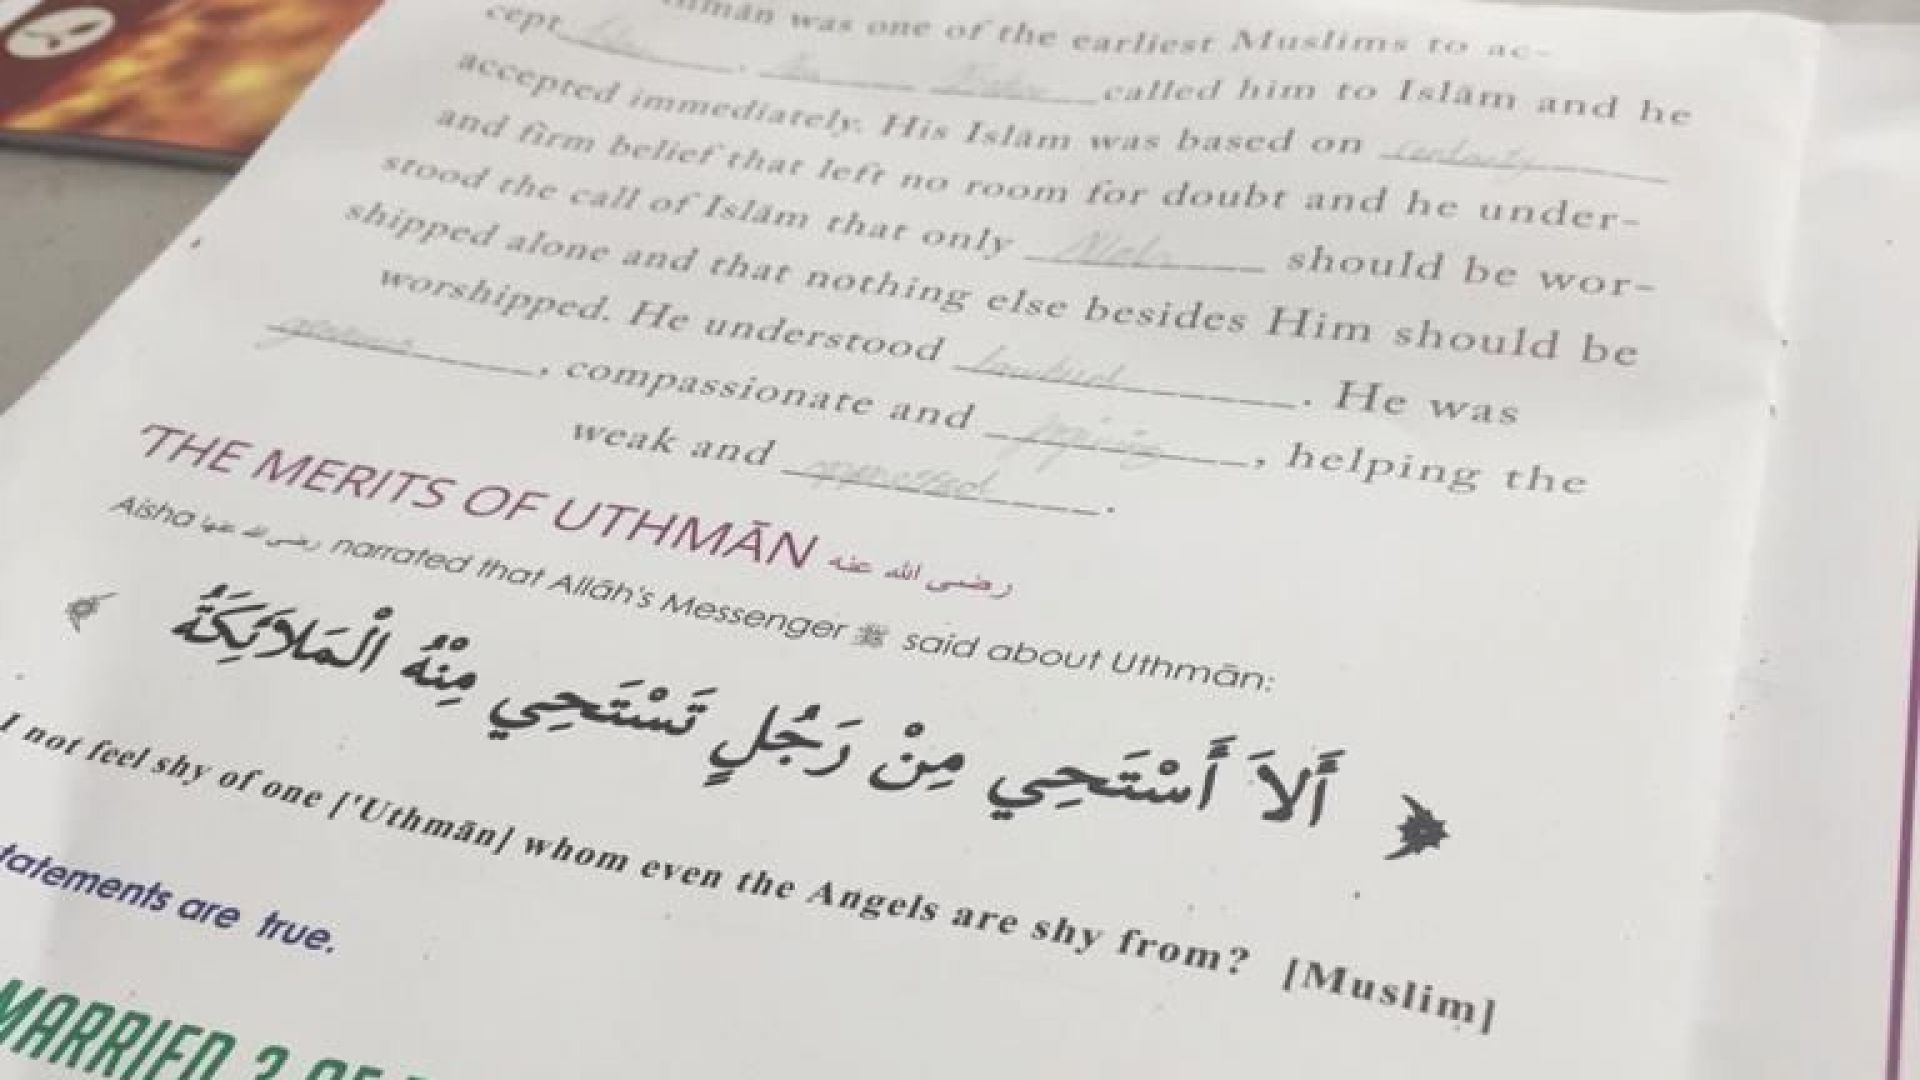 was one of the earliest Muslims to ac-
cept . called him to Islām and he
accepted immediately. His Islām was based on
and firm belief that left no room for doubt and he under-
stood the call of Islām that only should be wor-
shipped alone and that nothing else besides Him should be
worshipped. He understood . He was
, compassionate and , helping the
weak and oppressed .
THE MERITS OF UTHMĀN رضي الله عنه
Aisha رضي الله عنها narrated that Allāh's Messenger ﷺ said about Uthmān:
أَلاَ أَسْتَحِي مِنْ رَجُلٍ تَسْتَحِي مِنْهُ الْمَلاَئِكَةُ
I not feel shy of one ['Uthmān] whom even the Angels are shy from? [Muslim]
tatements are true.
MARRIED 2 OF